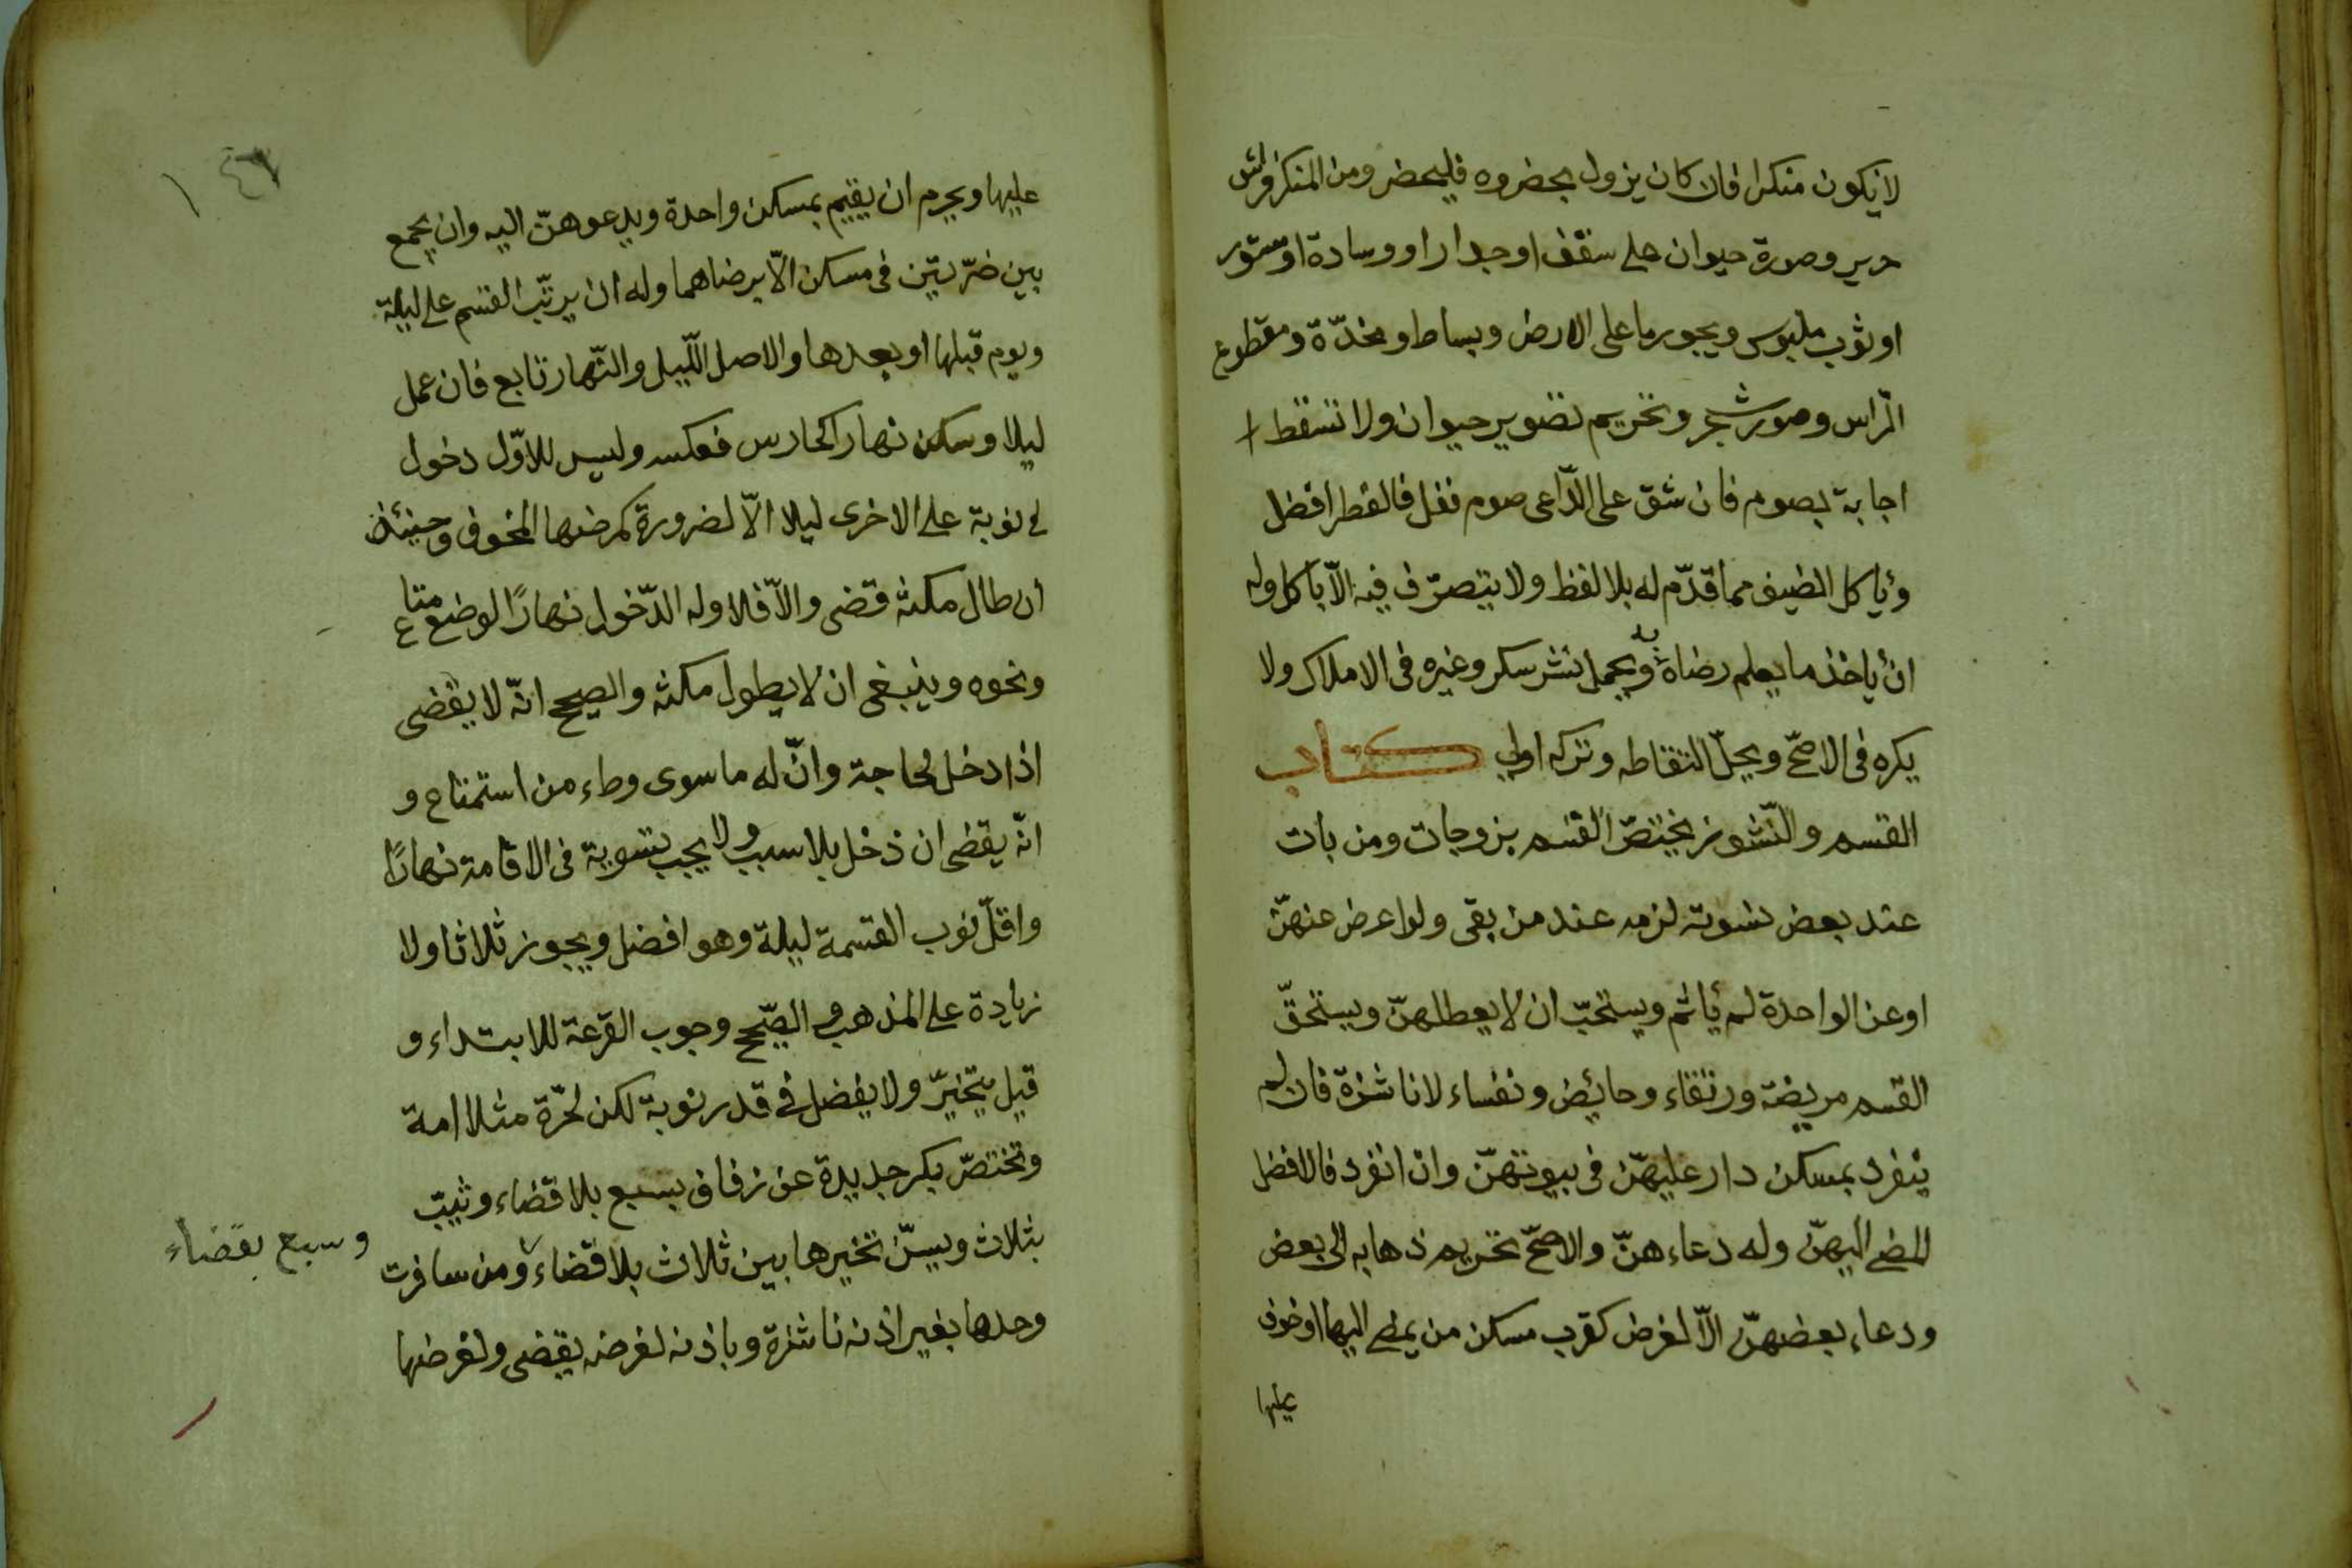 لا يكون منكرا فان كان يزول بحضوره فليحضر ومن المنكر فراش
حرير وصورة حيوان على سقف او جدار او وسادة او ستور
او ثوب ملبوس ويجوز ما على الارض وبساط ومخدّة ومقطوع
الرّاس وصور شجر وتحريم تصوير حيوان ولا تسقط
اجابة بصوم فان شق على الدّاعى صوم نفل فالفطر افضل
ويأكل الضيف مما قدّم له بلا لفظ ولا يتصرّف فيه الّا بأكل وله
ان يأخذ ما يعلم رضاه به ويحل نثر سكر وغيره فى الاملاك ولا
يكره فى الاصحّ ويحلّ التقاطه وتركه اولى كتاب
القسم والنّشوز يختصّ القسم بزوجات ومن بات
عند بعض نسوته لزمه عند من بقى ولو اعرض عنهنّ
او عن الواحدة لم يأثم ويستحبّ ان لا يعطلهنّ ويستحقّ
القسم مريضة ورتقاء وحايض ونفساء لا ناشزة فان لم
ينفرد بمسكن دار عليهنّ فى بيوتهنّ وان انفرد فالافضل
المضى اليهنّ وله دعاءهنّ والاصحّ تحريم ذهابه الى بعض
ودعاء بعضهنّ الّا لغرض كقرب مسكن من يمضى اليها او خوف
عليها
عليها ويحرم ان يقيم بمسكن واحدة ويدعوهنّ اليه وان يجمع
بين ضرّتين فى مسكن الّا برضاهما وله ان يرتّب القسم على ليلة
ويوم قبلها او بعدها والاصل اللّيل والنّهار تابع فان عمل
ليلا وسكن نهارا كحارس فعكسه وليس للاوّل دخول
فى نوبة على الاخرى ليلا الّا لضرورة كمرضها المخوف وحينئذ
ان طال مكثه قضى والّا فلا وله الدّخول نهارًا لوضع متاع
ونحوه وينبغى ان لا يطول مكثه والصحيح انّه لا يقضى
اذا دخل لحاجة وانّ له ما سوى وطء من استمتاع و
انّه يقضى ان دخل بلا سبب ولا يجب تسوية فى الاقامة نهارًا
واقلّ نوب القسمة ليلة وهو افضل ويجوز ثلاثا ولا
زيادة على المذهب والصّحيح وجوب القرعة للابتداء و
قيل يتخيّر ولا يفضل فى قدر نوبة لكن لحرّة مثلا امة
وتختصّ بكر جديدة عن زفاف بسبع بلا قضاء وثيّب
بثلاث ويسنّ تخيرها بين ثلاث بلا قضاء ومن سافرت
وسبع بقضاء
وحدها بغير اذنه ناشزة وباذنه لغرضه يقضى ولغرضها